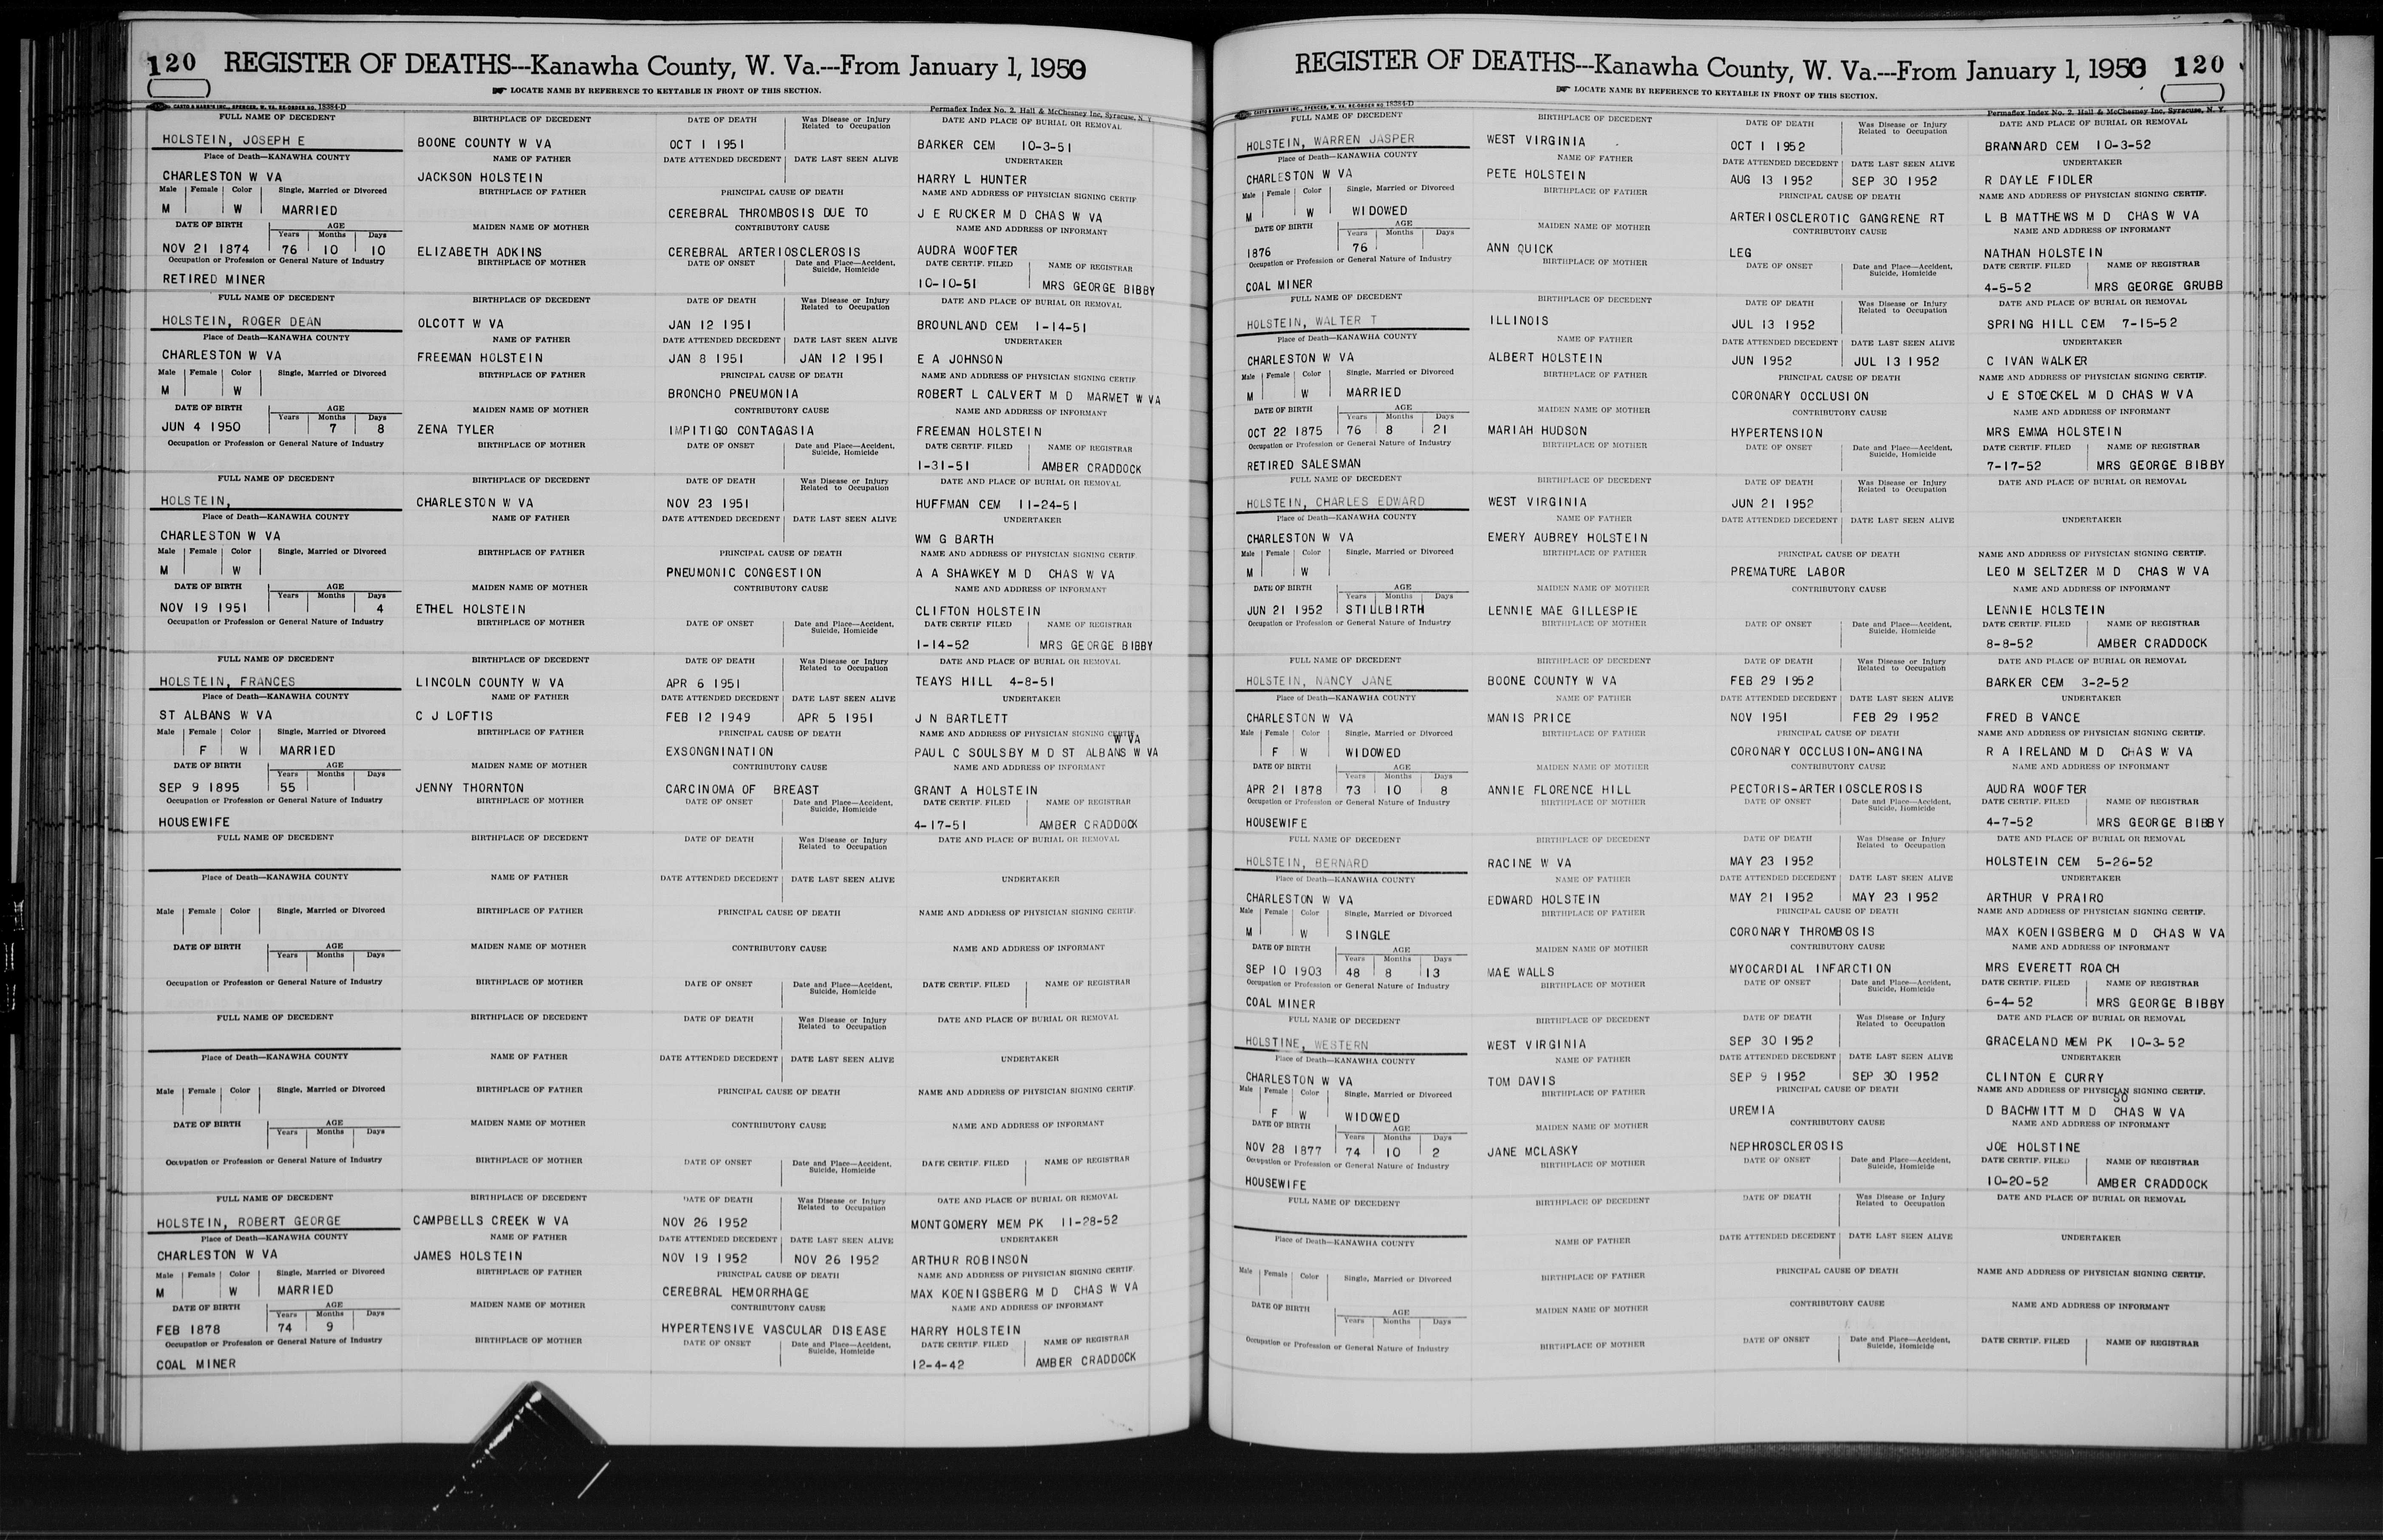 120 REGISTER OF DEATHS---Kanawha County, W. Va.---From January 1, 1950
LOCATE NAME BY REFERENCE TO KEYTABLE IN FRONT OF THIS SECTION.
CASTO & HARRIS INC., SPENCER, W. VA. RE-ORDER NO. 18384-D Permaflex Index No. 2, Hall & McChesney Inc, Syracuse, N. Y.
FULL NAME OF DECEDENT BIRTHPLACE OF DECEDENT DATE OF DEATH Was Disease or Injury Related to Occupation DATE AND PLACE OF BURIAL OR REMOVAL
HOLSTEIN, JOSEPH E BOONE COUNTY W VA OCT 1 1951 BARKER CEM 10-3-51
Place of Death—KANAWHA COUNTY NAME OF FATHER DATE ATTENDED DECEDENT DATE LAST SEEN ALIVE UNDERTAKER
CHARLESTON W VA JACKSON HOLSTEIN HARRY L HUNTER
Male Female Color Single, Married or Divorced BIRTHPLACE OF FATHER PRINCIPAL CAUSE OF DEATH NAME AND ADDRESS OF PHYSICIAN SIGNING CERTIF
M W MARRIED CEREBRAL THROMBOSIS DUE TO J E RUCKER M D CHAS W VA
DATE OF BIRTH AGE Years Months Days MAIDEN NAME OF MOTHER CONTRIBUTORY CAUSE NAME AND ADDRESS OF INFORMANT
NOV 21 1874 76 10 10 ELIZABETH ADKINS CEREBRAL ARTERIOSCLEROSIS AUDRA WOOFTER
Occupation or Profession or General Nature of Industry BIRTHPLACE OF MOTHER DATE OF ONSET Date and Place—Accident, Suicide, Homicide DATE CERTIF. FILED NAME OF REGISTRAR
RETIRED MINER 10-10-51 MRS GEORGE BIBBY
FULL NAME OF DECEDENT BIRTHPLACE OF DECEDENT DATE OF DEATH Was Disease or Injury Related to Occupation DATE AND PLACE OF BURIAL OR REMOVAL
HOLSTEIN, ROGER DEAN OLCOTT W VA JAN 12 1951 BROUNLAND CEM 1-14-51
Place of Death—KANAWHA COUNTY NAME OF FATHER DATE ATTENDED DECEDENT DATE LAST SEEN ALIVE UNDERTAKER
CHARLESTON W VA FREEMAN HOLSTEIN JAN 8 1951 JAN 12 1951 E A JOHNSON
Male Female Color Single, Married or Divorced BIRTHPLACE OF FATHER PRINCIPAL CAUSE OF DEATH NAME AND ADDRESS OF PHYSICIAN SIGNING CERTIF
M W BRONCHO PNEUMONIA ROBERT L CALVERT M D MARMET W VA
DATE OF BIRTH AGE Years Months Days MAIDEN NAME OF MOTHER CONTRIBUTORY CAUSE NAME AND ADDRESS OF INFORMANT
JUN 4 1950 7 8 ZENA TYLER IMPITIGO CONTAGASIA FREEMAN HOLSTEIN
Occupation or Profession or General Nature of Industry BIRTHPLACE OF MOTHER DATE OF ONSET Date and Place—Accident, Suicide, Homicide DATE CERTIF. FILED NAME OF REGISTRAR
1-31-51 AMBER CRADDOCK
FULL NAME OF DECEDENT BIRTHPLACE OF DECEDENT DATE OF DEATH Was Disease or Injury Related to Occupation DATE AND PLACE OF BURIAL OR REMOVAL
HOLSTEIN, CHARLESTON W VA NOV 23 1951 HUFFMAN CEM 11-24-51
Place of Death—KANAWHA COUNTY NAME OF FATHER DATE ATTENDED DECEDENT DATE LAST SEEN ALIVE UNDERTAKER
CHARLESTON W VA WM G BARTH
Male Female Color Single, Married or Divorced BIRTHPLACE OF FATHER PRINCIPAL CAUSE OF DEATH NAME AND ADDRESS OF PHYSICIAN SIGNING CERTIF
M W PNEUMONIC CONGESTION A A SHAWKEY M D CHAS W VA
DATE OF BIRTH AGE Years Months Days MAIDEN NAME OF MOTHER CONTRIBUTORY CAUSE NAME AND ADDRESS OF INFORMANT
NOV 19 1951 4 ETHEL HOLSTEIN CLIFTON HOLSTEIN
Occupation or Profession or General Nature of Industry BIRTHPLACE OF MOTHER DATE OF ONSET Date and Place—Accident, Suicide, Homicide DATE CERTIF FILED NAME OF REGISTRAR
1-14-52 MRS GEORGE BIBBY
FULL NAME OF DECEDENT BIRTHPLACE OF DECEDENT DATE OF DEATH Was Disease or Injury Related to Occupation DATE AND PLACE OF BURIAL OR REMOVAL
HOLSTEIN, FRANCES LINCOLN COUNTY W VA APR 6 1951 TEAYS HILL 4-8-51
Place of Death—KANAWHA COUNTY NAME OF FATHER DATE ATTENDED DECEDENT DATE LAST SEEN ALIVE UNDERTAKER
ST ALBANS W VA C J LOFTIS FEB 12 1949 APR 5 1951 J N BARTLETT
Male Female Color Single, Married or Divorced BIRTHPLACE OF FATHER PRINCIPAL CAUSE OF DEATH NAME AND ADDRESS OF PHYSICIAN SIGNING CERTIF.
W VA
F W MARRIED EXSONGNINATION PAUL C SOULSBY M D ST ALBANS W VA
DATE OF BIRTH AGE Years Months Days MAIDEN NAME OF MOTHER CONTRIBUTORY CAUSE NAME AND ADDRESS OF INFORMANT
SEP 9 1895 55 JENNY THORNTON CARCINOMA OF BREAST GRANT A HOLSTEIN
Occupation or Profession or General Nature of Industry BIRTHPLACE OF MOTHER DATE OF ONSET Date and Place—Accident, Suicide, Homicide DATE CERTIF. FILED NAME OF REGISTRAR
HOUSEWIFE 4-17-51 AMBER CRADDOCK
FULL NAME OF DECEDENT BIRTHPLACE OF DECEDENT DATE OF DEATH Was Disease or Injury Related to Occupation DATE AND PLACE OF BURIAL OR REMOVAL
Place of Death—KANAWHA COUNTY NAME OF FATHER DATE ATTENDED DECEDENT DATE LAST SEEN ALIVE UNDERTAKER
Male Female Color Single, Married or Divorced BIRTHPLACE OF FATHER PRINCIPAL CAUSE OF DEATH NAME AND ADDRESS OF PHYSICIAN SIGNING CERTIF.
DATE OF BIRTH AGE Years Months Days MAIDEN NAME OF MOTHER CONTRIBUTORY CAUSE NAME AND ADDRESS OF INFORMANT
Occupation or Profession or General Nature of Industry BIRTHPLACE OF MOTHER DATE OF ONSET Date and Place—Accident, Suicide, Homicide DATE CERTIF. FILED NAME OF REGISTRAR
FULL NAME OF DECEDENT BIRTHPLACE OF DECEDENT DATE OF DEATH Was Disease or Injury Related to Occupation DATE AND PLACE OF BURIAL OR REMOVAL
Place of Death—KANAWHA COUNTY NAME OF FATHER DATE ATTENDED DECEDENT DATE LAST SEEN ALIVE UNDERTAKER
Male Female Color Single, Married or Divorced BIRTHPLACE OF FATHER PRINCIPAL CAUSE OF DEATH NAME AND ADDRESS OF PHYSICIAN SIGNING CERTIF.
DATE OF BIRTH AGE Years Months Days MAIDEN NAME OF MOTHER CONTRIBUTORY CAUSE NAME AND ADDRESS OF INFORMANT
Occupation or Profession or General Nature of Industry BIRTHPLACE OF MOTHER DATE OF ONSET Date and Place—Accident, Suicide, Homicide DATE CERTIF. FILED NAME OF REGISTRAR
FULL NAME OF DECEDENT BIRTHPLACE OF DECEDENT DATE OF DEATH Was Disease or Injury Related to Occupation DATE AND PLACE OF BURIAL OR REMOVAL
HOLSTEIN, ROBERT GEORGE CAMPBELLS CREEK W VA NOV 26 1952 MONTGOMERY MEM PK 11-28-52
Place of Death—KANAWHA COUNTY NAME OF FATHER DATE ATTENDED DECEDENT DATE LAST SEEN ALIVE UNDERTAKER
CHARLESTON W VA JAMES HOLSTEIN NOV 19 1952 NOV 26 1952 ARTHUR ROBINSON
Male Female Color Single, Married or Divorced BIRTHPLACE OF FATHER PRINCIPAL CAUSE OF DEATH NAME AND ADDRESS OF PHYSICIAN SIGNING CERTIF.
M W MARRIED CEREBRAL HEMORRHAGE MAX KOENIGSBERG M D CHAS W VA
DATE OF BIRTH AGE Years Months Days MAIDEN NAME OF MOTHER CONTRIBUTORY CAUSE NAME AND ADDRESS OF INFORMANT
FEB 1878 74 9 HYPERTENSIVE VASCULAR DISEASE HARRY HOLSTEIN
Occupation or Profession or General Nature of Industry BIRTHPLACE OF MOTHER DATE OF ONSET Date and Place—Accident, Suicide, Homicide DATE CERTIF. FILED NAME OF REGISTRAR
COAL MINER 12-4-42 AMBER CRADDOCK
REGISTER OF DEATHS---Kanawha County, W. Va.---From January 1, 1950 120
LOCATE NAME BY REFERENCE TO KEYTABLE IN FRONT OF THIS SECTION.
CASTO & HARRIS INC., SPENCER, W. VA. RE-ORDER NO. 18384-D Permaflex Index No. 2, Hall & McChesney Inc, Syracuse, N. Y.
FULL NAME OF DECEDENT BIRTHPLACE OF DECEDENT DATE OF DEATH Was Disease or Injury Related to Occupation DATE AND PLACE OF BURIAL OR REMOVAL
HOLSTEIN, WARREN JASPER WEST VIRGINIA OCT 1 1952 BRANNARD CEM 10-3-52
Place of Death—KANAWHA COUNTY NAME OF FATHER DATE ATTENDED DECEDENT DATE LAST SEEN ALIVE UNDERTAKER
CHARLESTON W VA PETE HOLSTEIN AUG 13 1952 SEP 30 1952 R DAYLE FIDLER
Male Female Color Single, Married or Divorced BIRTHPLACE OF FATHER PRINCIPAL CAUSE OF DEATH NAME AND ADDRESS OF PHYSICIAN SIGNING CERTIF.
M W WIDOWED ARTERIOSCLEROTIC GANGRENE RT L B MATTHEWS M D CHAS W VA
DATE OF BIRTH AGE Years Months Days MAIDEN NAME OF MOTHER CONTRIBUTORY CAUSE NAME AND ADDRESS OF INFORMANT
1876 76 ANN QUICK LEG NATHAN HOLSTEIN
Occupation or Profession or General Nature of Industry BIRTHPLACE OF MOTHER DATE OF ONSET Date and Place—Accident, Suicide, Homicide DATE CERTIF. FILED NAME OF REGISTRAR
COAL MINER 4-5-52 MRS GEORGE GRUBB
FULL NAME OF DECEDENT BIRTHPLACE OF DECEDENT DATE OF DEATH Was Disease or Injury Related to Occupation DATE AND PLACE OF BURIAL OR REMOVAL
HOLSTEIN, WALTER T ILLINOIS JUL 13 1952 SPRING HILL CEM 7-15-52
Place of Death—KANAWHA COUNTY NAME OF FATHER DATE ATTENDED DECEDENT DATE LAST SEEN ALIVE UNDERTAKER
CHARLESTON W VA ALBERT HOLSTEIN JUN 1952 JUL 13 1952 C IVAN WALKER
Male Female Color Single, Married or Divorced BIRTHPLACE OF FATHER PRINCIPAL CAUSE OF DEATH NAME AND ADDRESS OF PHYSICIAN SIGNING CERTIF.
M W MARRIED CORONARY OCCLUSION J E STOECKEL M D CHAS W VA
DATE OF BIRTH AGE Years Months Days MAIDEN NAME OF MOTHER CONTRIBUTORY CAUSE NAME AND ADDRESS OF INFORMANT
OCT 22 1875 76 8 21 MARIAH HUDSON HYPERTENSION MRS EMMA HOLSTEIN
Occupation or Profession or General Nature of Industry BIRTHPLACE OF MOTHER DATE OF ONSET Date and Place—Accident, Suicide, Homicide DATE CERTIF. FILED NAME OF REGISTRAR
RETIRED SALESMAN 7-17-52 MRS GEORGE BIBBY
FULL NAME OF DECEDENT BIRTHPLACE OF DECEDENT DATE OF DEATH Was Disease or Injury Related to Occupation DATE AND PLACE OF BURIAL OR REMOVAL
HOLSTEIN, CHARLES EDWARD WEST VIRGINIA JUN 21 1952
Place of Death—KANAWHA COUNTY NAME OF FATHER DATE ATTENDED DECEDENT DATE LAST SEEN ALIVE UNDERTAKER
CHARLESTON W VA EMERY AUBREY HOLSTEIN
Male Female Color Single, Married or Divorced BIRTHPLACE OF FATHER PRINCIPAL CAUSE OF DEATH NAME AND ADDRESS OF PHYSICIAN SIGNING CERTIF.
M W PREMATURE LABOR LEO M SELTZER M D CHAS W VA
DATE OF BIRTH AGE Years Months Days MAIDEN NAME OF MOTHER CONTRIBUTORY CAUSE NAME AND ADDRESS OF INFORMANT
JUN 21 1952 STILLBIRTH LENNIE MAE GILLESPIE LENNIE HOLSTEIN
Occupation or Profession or General Nature of Industry BIRTHPLACE OF MOTHER DATE OF ONSET Date and Place—Accident, Suicide, Homicide DATE CERTIF. FILED NAME OF REGISTRAR
8-8-52 AMBER CRADDOCK
FULL NAME OF DECEDENT BIRTHPLACE OF DECEDENT DATE OF DEATH Was Disease or Injury Related to Occupation DATE AND PLACE OF BURIAL OR REMOVAL
HOLSTEIN, NANCY JANE BOONE COUNTY W VA FEB 29 1952 BARKER CEM 3-2-52
Place of Death—KANAWHA COUNTY NAME OF FATHER DATE ATTENDED DECEDENT DATE LAST SEEN ALIVE UNDERTAKER
CHARLESTON W VA MANIS PRICE NOV 1951 FEB 29 1952 FRED B VANCE
Male Female Color Single, Married or Divorced BIRTHPLACE OF FATHER PRINCIPAL CAUSE OF DEATH NAME AND ADDRESS OF PHYSICIAN SIGNING CERTIF.
F W WIDOWED CORONARY OCCLUSION-ANGINA R A IRELAND M D CHAS W VA
DATE OF BIRTH AGE Years Months Days MAIDEN NAME OF MOTHER CONTRIBUTORY CAUSE NAME AND ADDRESS OF INFORMANT
APR 21 1878 73 10 8 ANNIE FLORENCE HILL PECTORIS-ARTERIOSCLEROSIS AUDRA WOOFTER
Occupation or Profession or General Nature of Industry BIRTHPLACE OF MOTHER DATE OF ONSET Date and Place—Accident, Suicide, Homicide DATE CERTIF. FILED NAME OF REGISTRAR
HOUSEWIFE 4-7-52 MRS GEORGE BIBBY
FULL NAME OF DECEDENT BIRTHPLACE OF DECEDENT DATE OF DEATH Was Disease or Injury Related to Occupation DATE AND PLACE OF BURIAL OR REMOVAL
HOLSTEIN, BERNARD RACINE W VA MAY 23 1952 HOLSTEIN CEM 5-26-52
Place of Death—KANAWHA COUNTY NAME OF FATHER DATE ATTENDED DECEDENT DATE LAST SEEN ALIVE UNDERTAKER
CHARLESTON W VA EDWARD HOLSTEIN MAY 21 1952 MAY 23 1952 ARTHUR V PRAIRO
Male Female Color Single, Married or Divorced BIRTHPLACE OF FATHER PRINCIPAL CAUSE OF DEATH NAME AND ADDRESS OF PHYSICIAN SIGNING CERTIF.
M W SINGLE CORONARY THROMBOSIS MAX KOENIGSBERG M D CHAS W VA
DATE OF BIRTH AGE Years Months Days MAIDEN NAME OF MOTHER CONTRIBUTORY CAUSE NAME AND ADDRESS OF INFORMANT
SEP 10 1903 48 8 13 MAE WALLS MYOCARDIAL INFARCTION MRS EVERETT ROACH
Occupation or Profession or General Nature of Industry BIRTHPLACE OF MOTHER DATE OF ONSET Date and Place—Accident, Suicide, Homicide DATE CERTIF. FILED NAME OF REGISTRAR
COAL MINER 6-4-52 MRS GEORGE BIBBY
FULL NAME OF DECEDENT BIRTHPLACE OF DECEDENT DATE OF DEATH Was Disease or Injury Related to Occupation DATE AND PLACE OF BURIAL OR REMOVAL
HOLSTINE, WESTERN WEST VIRGINIA SEP 30 1952 GRACELAND MEM PK 10-3-52
Place of Death—KANAWHA COUNTY NAME OF FATHER DATE ATTENDED DECEDENT DATE LAST SEEN ALIVE UNDERTAKER
CHARLESTON W VA TOM DAVIS SEP 9 1952 SEP 30 1952 CLINTON E CURRY
Male Female Color Single, Married or Divorced BIRTHPLACE OF FATHER PRINCIPAL CAUSE OF DEATH NAME AND ADDRESS OF PHYSICIAN SIGNING CERTIF.
SO
F W WIDOWED UREMIA D BACHWITT M D CHAS W VA
DATE OF BIRTH AGE Years Months Days MAIDEN NAME OF MOTHER CONTRIBUTORY CAUSE NAME AND ADDRESS OF INFORMANT
NOV 28 1877 74 10 2 JANE MCLASKY NEPHROSCLEROSIS JOE HOLSTINE
Occupation or Profession or General Nature of Industry BIRTHPLACE OF MOTHER DATE OF ONSET Date and Place—Accident, Suicide, Homicide DATE CERTIF. FILED NAME OF REGISTRAR
HOUSEWIFE 10-20-52 AMBER CRADDOCK
FULL NAME OF DECEDENT BIRTHPLACE OF DECEDENT DATE OF DEATH Was Disease or Injury Related to Occupation DATE AND PLACE OF BURIAL OR REMOVAL
Place of Death—KANAWHA COUNTY NAME OF FATHER DATE ATTENDED DECEDENT DATE LAST SEEN ALIVE UNDERTAKER
Male Female Color Single, Married or Divorced BIRTHPLACE OF FATHER PRINCIPAL CAUSE OF DEATH NAME AND ADDRESS OF PHYSICIAN SIGNING CERTIF.
DATE OF BIRTH AGE Years Months Days MAIDEN NAME OF MOTHER CONTRIBUTORY CAUSE NAME AND ADDRESS OF INFORMANT
Occupation or Profession or General Nature of Industry BIRTHPLACE OF MOTHER DATE OF ONSET Date and Place—Accident, Suicide, Homicide DATE CERTIF. FILED NAME OF REGISTRAR